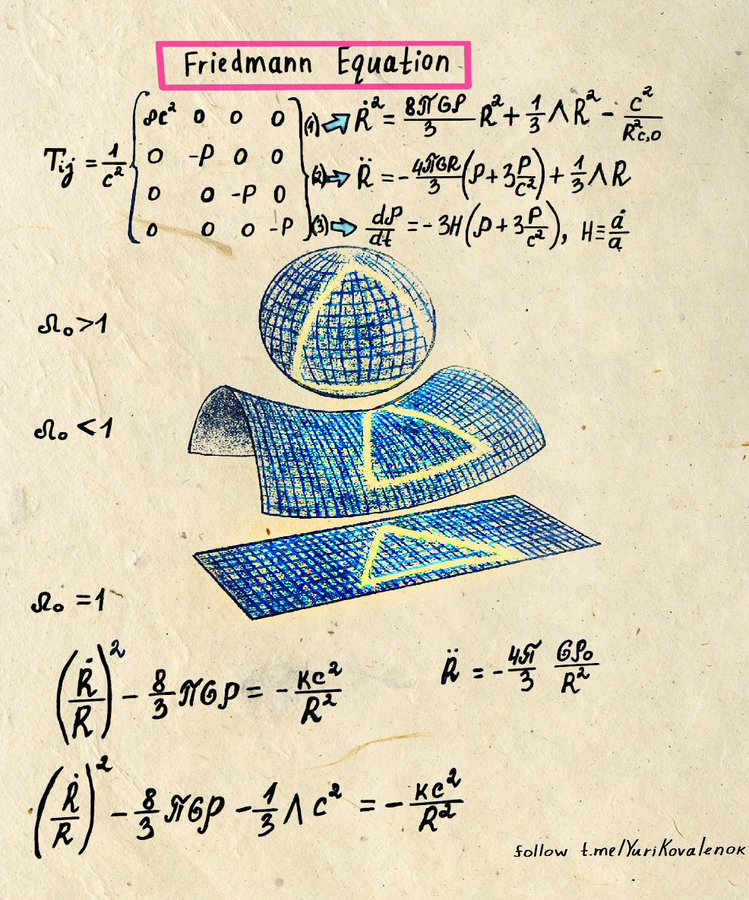 Friedmann Equation
Tij = 1/c² ( ρc² 0 0 0
0 -P 0 0
0 0 -P 0
0 0 0 -P )
(1) ⇒ Ṙ² = 8πGρ/3 R² + 1/3 ΛR² - c²/R²c,0
(2) ⇒ R̈ = - 4πGR/3 (ρ + 3 P/c²) + 1/3 ΛR
(3) ⇒ dρ/dt = -3H(ρ + 3 P/c²), H ≡ ȧ/a
Ω₀ > 1
Ω₀ < 1
Ω₀ = 1
(Ṙ/R)² - 8/3 πGρ = - Kc²/R²
R̈ = - 4π/3 Gρ₀/R²
(Ṙ/R)² - 8/3 πGρ - 1/3 Λc² = - Kc²/R²
follow t.me/YuriKovalenok